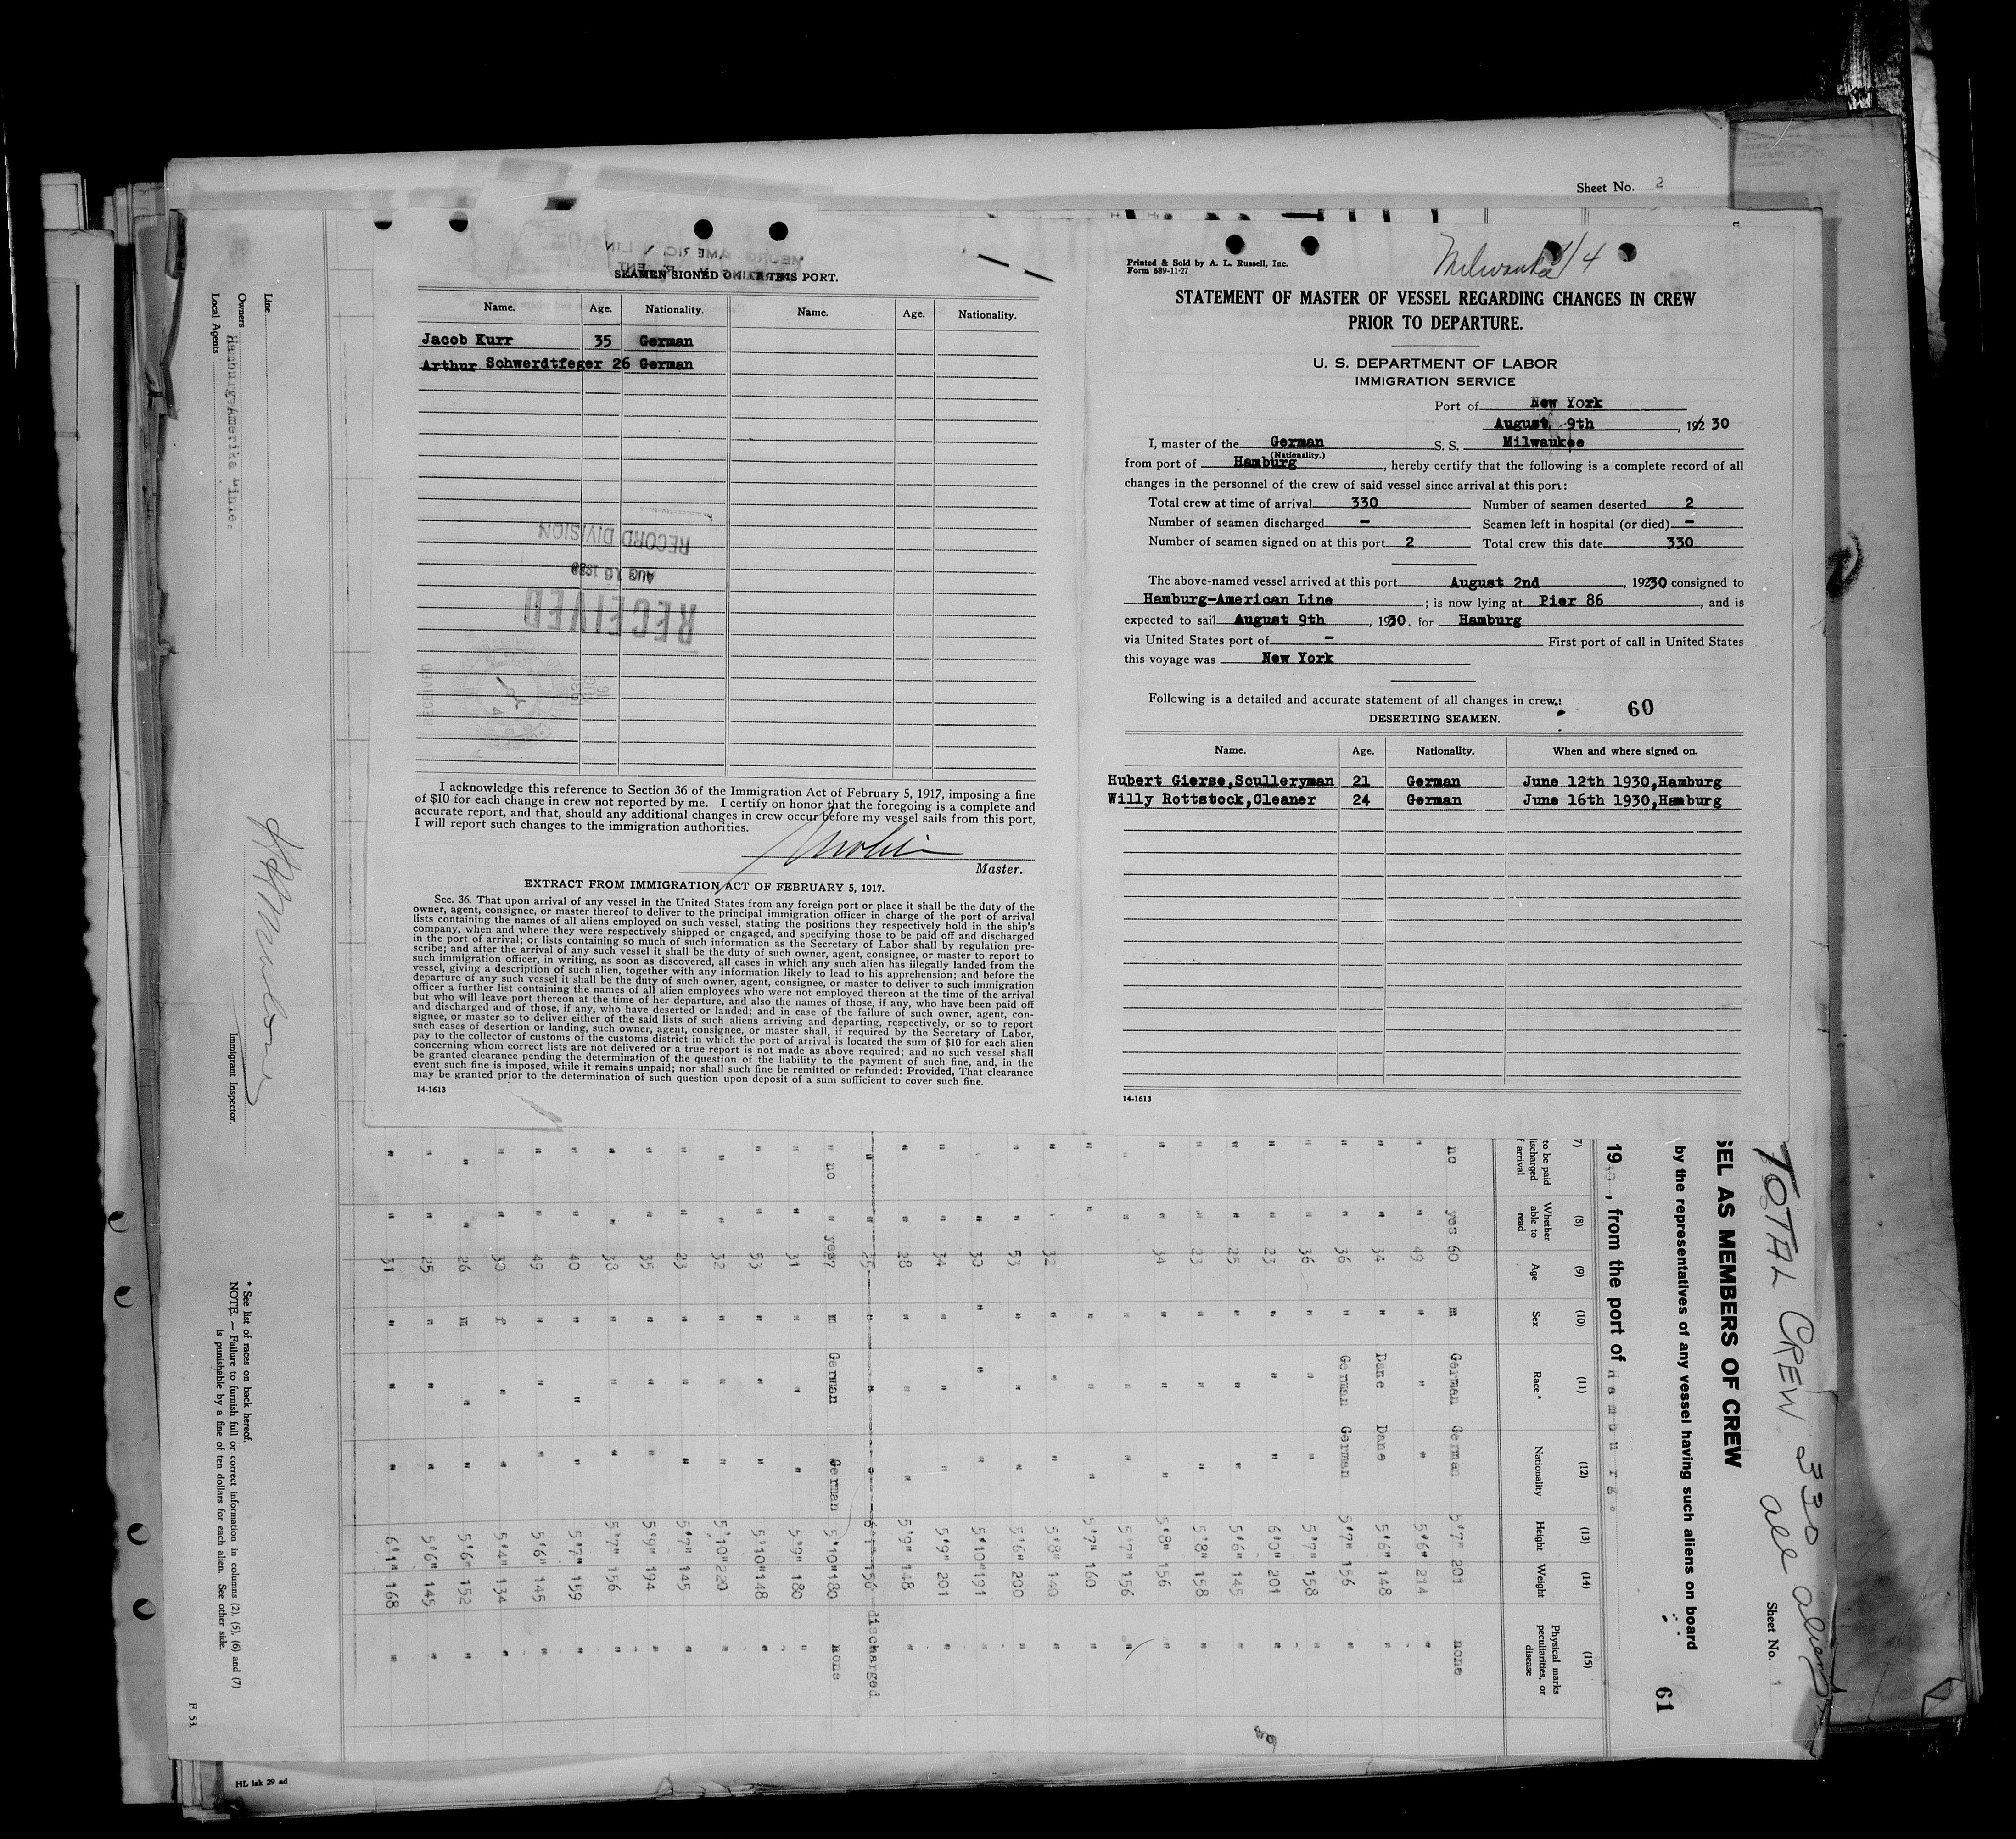 Sheet No. 2
SEAMEN SIGNED ON AT THIS PORT.
Name. Age. Nationality. Name. Age. Nationality.
Jacob Kurr 35 German
Arthur Schwerdtfeger 26 German
RECORD DIVISION
RECEIVED
I acknowledge this reference to Section 36 of the Immigration Act of February 5, 1917, imposing a fine
of $10 for each change in crew not reported by me. I certify on honor that the foregoing is a complete and
accurate report, and that, should any additional changes in crew occur before my vessel sails from this port,
I will report such changes to the immigration authorities.
Master.
EXTRACT FROM IMMIGRATION ACT OF FEBRUARY 5, 1917.
Sec. 36. That upon arrival of any vessel in the United States from any foreign port or place it shall be the duty of the
owner, agent, consignee, or master thereof to deliver to the principal immigration officer in charge of the port of arrival
lists containing the names of all aliens employed on such vessel, stating the positions they respectively hold in the ship's
company, when and where they were respectively shipped or engaged, and specifying those to be paid off and discharged
in the port of arrival; or lists containing so much of such information as the Secretary of Labor shall by regulation pre-
scribe; and after the arrival of any such vessel it shall be the duty of such owner, agent, consignee, or master to report to
such immigration officer, in writing, as soon as discovered, all cases in which any such alien has illegally landed from the
vessel, giving a description of such alien, together with any information likely to lead to his apprehension; and before the
departure of any such vessel it shall be the duty of such owner, agent, consignee, or master to deliver to such immigration
officer a further list containing the names of all alien employees who were not employed thereon at the time of the arrival
but who will leave port thereon at the time of her departure, and also the names of those, if any, who have been paid off
and discharged and of those, if any, who have deserted or landed; and in case of the failure of such owner, agent, con-
signee, or master so to deliver either of the said lists of such aliens arriving and departing, respectively, or so to report
such cases of desertion or landing, such owner, agent, consignee, or master shall, if required by the Secretary of Labor,
pay to the collector of customs of the customs district in which the port of arrival is located the sum of $10 for each alien
concerning whom correct lists are not delivered or a true report is not made as above required; and no such vessel shall
be granted clearance pending the determination of the question of the liability to the payment of such fine, and, in the
event such fine is imposed, while it remains unpaid; nor shall such fine be remitted or refunded: Provided, That clearance
may be granted prior to the determination of such question upon deposit of a sum sufficient to cover such fine.
14-1613
Printed & Sold by A. L. Russell, Inc.
Form 689-11-27
Milwaukee 14
STATEMENT OF MASTER OF VESSEL REGARDING CHANGES IN CREW
PRIOR TO DEPARTURE.
U. S. DEPARTMENT OF LABOR
IMMIGRATION SERVICE
Port of New York
August 9th, 192 30
I, master of the German S. S. Milwaukee
(Nationality.)
from port of Hamburg, hereby certify that the following is a complete record of all
changes in the personnel of the crew of said vessel since arrival at this port:
Total crew at time of arrival 330 Number of seamen deserted 2
Number of seamen discharged - Seamen left in hospital (or died) -
Number of seamen signed on at this port 2 Total crew this date 330
The above-named vessel arrived at this port August 2nd, 19230 consigned to
Hamburg-American Line; is now lying at Pier 86, and is
expected to sail August 9th, 1930. for Hamburg
via United States port of - First port of call in United States
this voyage was New York
Following is a detailed and accurate statement of all changes in crew: 60
DESERTING SEAMEN.
Name. Age. Nationality. When and where signed on.
Hubert Gierse,Sculleryman 21 German June 12th 1930,Hamburg
Willy Rottstock,Cleaner 24 German June 16th 1930,Hamburg
14-1613
TOTAL CREW 330 all aliens
Sheet No. 1
SEL AS MEMBERS OF CREW
by the representatives of any vessel having such aliens on board
61
1930, from the port of Hamburg.
7) to be paid discharged f arrival
(8) Whether able to read
(9) Age
(10) Sex
(11) Race *
(12) Nationality
(13) Height
(14) Weight
(15) Physical marks peculiarities, or disease
no yes 60 m German German 5'7" 201 none
" " 49 " " " 5'6" 214 "
" " 34 " Dane Dane 5'6" 148 "
" " 36 " German German 5'7" 156 "
" " 36 " " " 5'7" 158 "
" " 23 " " " 6'0" 201 "
" " 25 " " " 5'6" 145 "
" " 23 " " " 5'8" 158 "
" " 34 " " " 5'8" 156 "
" " " " 5'7" 156 "
" " " " 5'7" 160 "
" " 32 " " " 5'8" 140 "
" " 53 " " " 5'6" 200 "
" " 30 " " " 5'10" 191 "
" " 34 " " " 5'9" 201 "
" " 28 " " " 5'9" 148 "
" " 25 " " " 6'1" 156 discharged
" no " yes 27 m German German 5'10" 180 none
" " 31 " " " 5'9" 180 "
" " 53 " " " 5'10" 148 "
" " 32 " " " 5'10" 220 "
" " 23 " " " 5'7" 145 "
" " 35 " " " 5'9" 194 "
" " 38 " " " 5'7" 156 "
" " 40 " " " 5'7" 159 "
" " 49 " " " 5'6" 145 "
" " 30 f " " 5'4" 134 "
" " 26 m " " 5'6" 152 "
" " 25 " " " 5'6" 145 "
" " 31 " " " 6'1" 168 "
Line
Owners Hamburg-Amerika Linie.
Local Agents
Immigrant Inspector.
* See list of races on back hereof.
NOTE. — Failure to furnish full or correct information in columns (2), (5), (6) and (7)
is punishable by a fine of ten dollars for each alien. See other side.
F. 53.
HL lak 29 ad